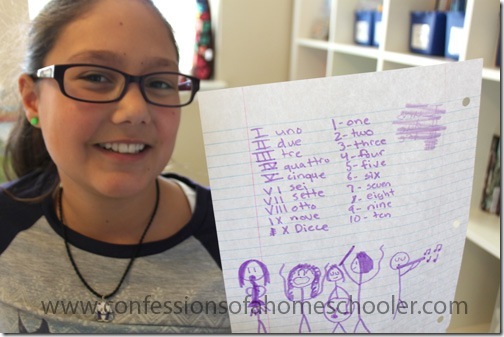 I uno 1- one
II due 2- two
III tre 3- three
IV quattro 4- four
V cinque 5- five
VI sei 6- six
VII sette 7- seven
VIII otto 8- eight
IX nove 9- nine
X Diece 10- ten
www.confessionsofahomeschooler.com